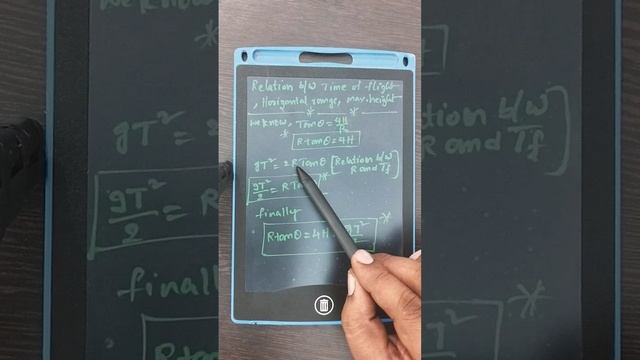 Relation b/w Time of flight
, Horizontal range, max. height
we know, Tanθ = 4H/R
Rtanθ = 4H
gT² = 2RTanθ [Relation b/w R and Tf]
gT²/2 = RTan
finally
Rtanθ = 4H = gT²/2